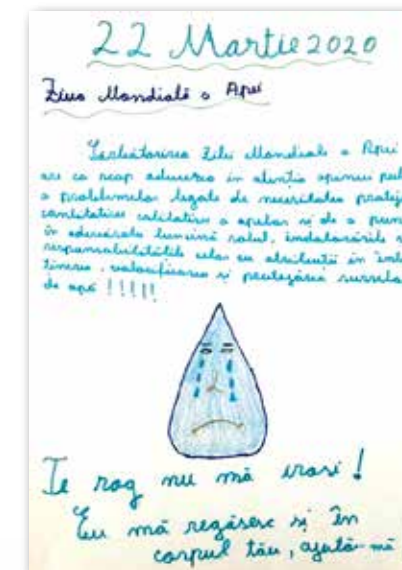 22 Martie 2020
Ziua Mondială a Apei
Sărbătorirea Zilei Mondiale a Apei
are ca scop aducerea în atenția opiniei pub
a problemelor legate de necesitatea protej
cantitativ calitative a apelor și de a pune
în adevărata lumină rolul, îndatoririle
responsabilitățile celor cu atribuții în într
ținerea, valorificarea și protejarea
de apă !!!!!
Te rog nu mă irosi!
Eu mă regăsesc și în
corpul tău, ajută-mă